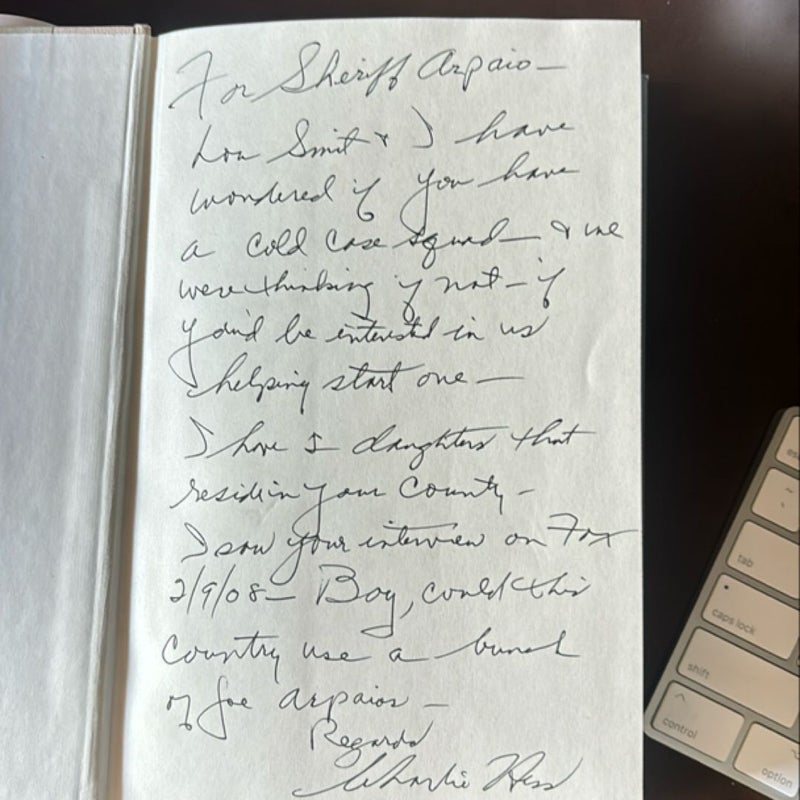 For Sheriff Arpaio—
Lou Smit & I have
wondered if you have
a cold case squad— & we
were thinking if not — if
you'd be interested in us
helping start one —
I have daughters that
reside in your County —
I saw your interview on Fox
2/9/08 — Boy, could this
Country use a bunch
of Joe Arpaios —
Regards
Charlie Hess
esc
~
`
tab
caps lock
shift
^
control
option